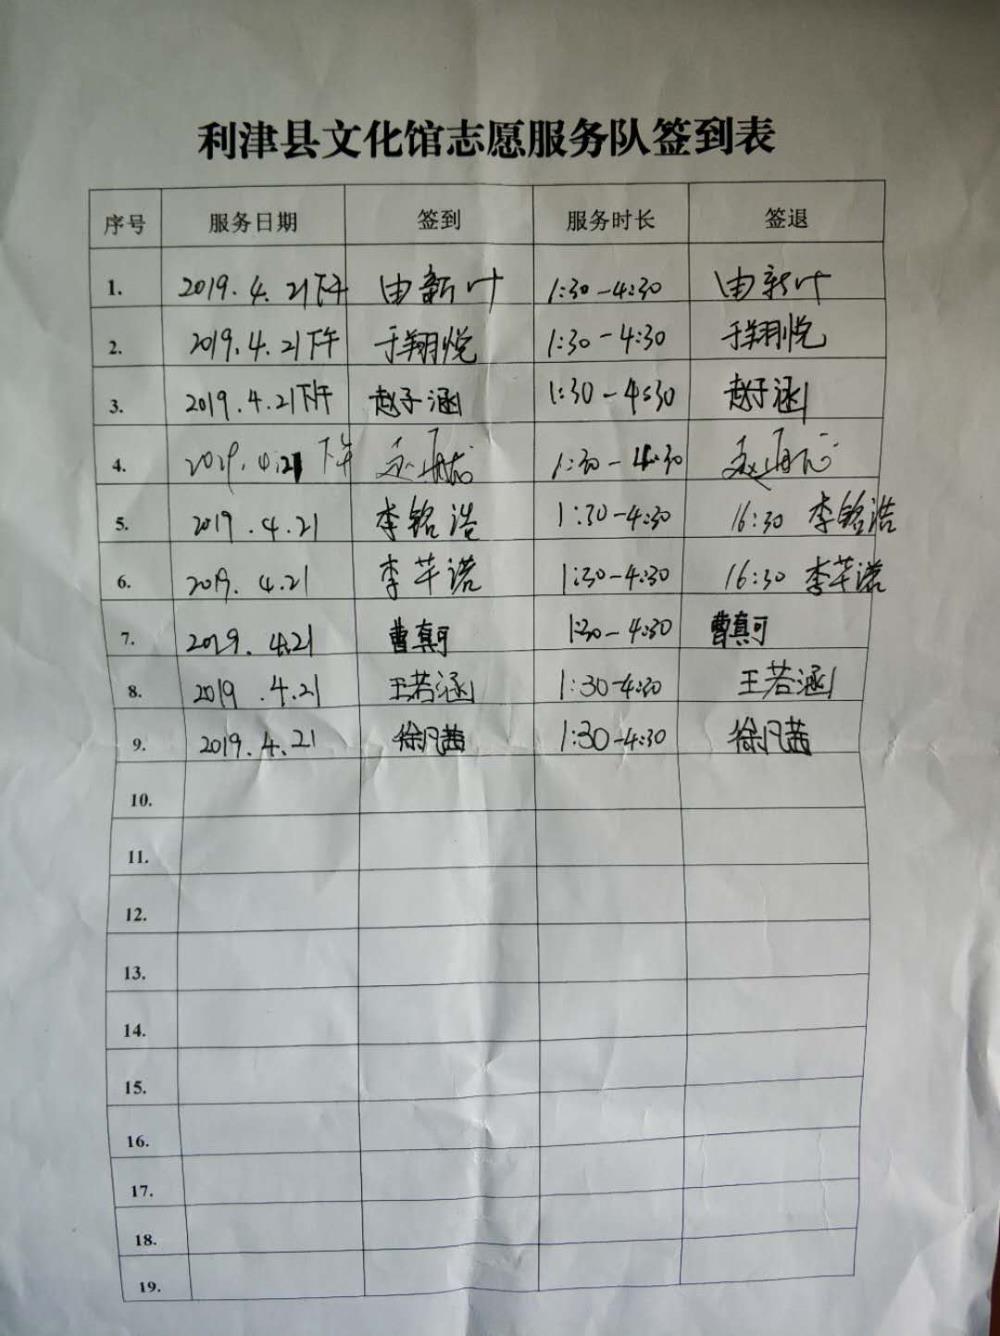 利津县文化馆志愿服务队签到表
序号 服务日期 签到 服务时长 签退
1. 2019.4.21下午 由新叶 1:30-4:30 由新叶
2. 2019.4.21下午 于翔悦 1:30-4:30 于翔悦
3. 2019.4.21下午 赵子涵 1:30-4:30 赵子涵
4. 2019.4.21下午 1:30-4:30
5. 2019.4.21 李铭浩 1:30-4:30 16:30 李铭浩
6. 2019.4.21 李芊诺 1:30-4:30 16:30 李芊诺
7. 2019.4.21 曹真可 1:30-4:30 曹真可
8. 2019.4.21 王若涵 1:30-4:30 王若涵
9. 2019.4.21 徐凡茜 1:30-4:30 徐凡茜
10.
11.
12.
13.
14.
15.
16.
17.
18.
19.